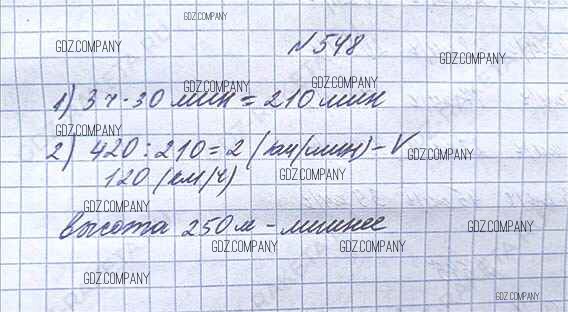 GDZ.COMPANY
№ 548
GDZ.COMPANY
GDZ.COMPANY GDZ.COMPANY
1) 3 ч · 30 мин = 210 мин
GDZ.COMPANY
2) 420 : 210 = 2 (км/мин) – V
GDZ.COMPANY
120 (км/ч)
GDZ.COMPANY
GDZ.COMPANY
высота 250 м – лишнее
GDZ.COMPANY
GDZ.COMPANY GDZ.COMPANY
GDZ.COMPANY
GDZ.COMPANY